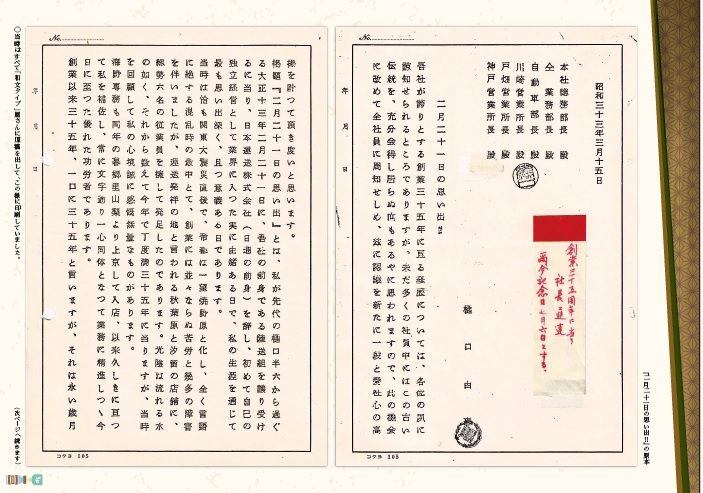 『二月二十一日の思い出』の原本
No.
昭和三十三年三月十五日
本社総務部長 殿
仝 業務部長 殿
自動車部長 殿
川崎営業所長 殿
戸畑営業所長 殿
神戸営業所長 殿
創業三十五周年に当り
社長通達
爾今記念日は七月六日とする。
二月二十一日の思い出
樋口由
吾社が誇りとする創業三十五年に亘る経歴については、各位の夙に
熟知せられるところでありますが、未だ多くの社員中にはこの古い
伝統を、充分会得し居らぬ向もあるやに思われますので、此の機会
に改めて全社員に周知せしめ、茲に認識を新たに一段と愛社心の高
コクヨ 105
No.
年 月 日
揚を計つて頂き度いと思います。
掲題『二月二十一日の思い出』とは、私が先代の樋口半六から過ぐ
る大正十三年二月二十一日に、吾社の前身である陸送組を譲り受け
るに当り、日本運送株式会社(日通の前身)を辞し、初めて自己の
独立経営として業界に入つた実に由緒ある日で、私の生涯を通じて
最も思い出深く、且つ意義ある日であります。
当時は恰も関東大震災直後で、帝都は一望焼野原と化し、全く言語
に絶する混乱時の最中とて、創業には並々ならぬ苦労と幾多の障害
を伴いましたが、運送発祥の地と言われる秋葉原と汐留の店舗に、
総勢六名の従業員を擁して発足したのであります。光陰は流れる水
の如く、それから数えて今年で丁度満三十五年に当りますが、当時
を回顧して私の心境誠に感慨無量なものがあります。
海野専務も同年の暮郷里山梨より上京して入店、以来久しきに亘つ
て私を補佐し、常に文字通り一心同体となつて業務に精進しつゝ今
日に至つた優れた功労者であります。
創業以来三十五年、一口に三十五年と言いますが、それは永い歳月
コクヨ 105
年 月 日
○当時はすべて「和文タイプ」屋さんに原稿を出して、この様に印刷していました。
(次ページへ続きます)